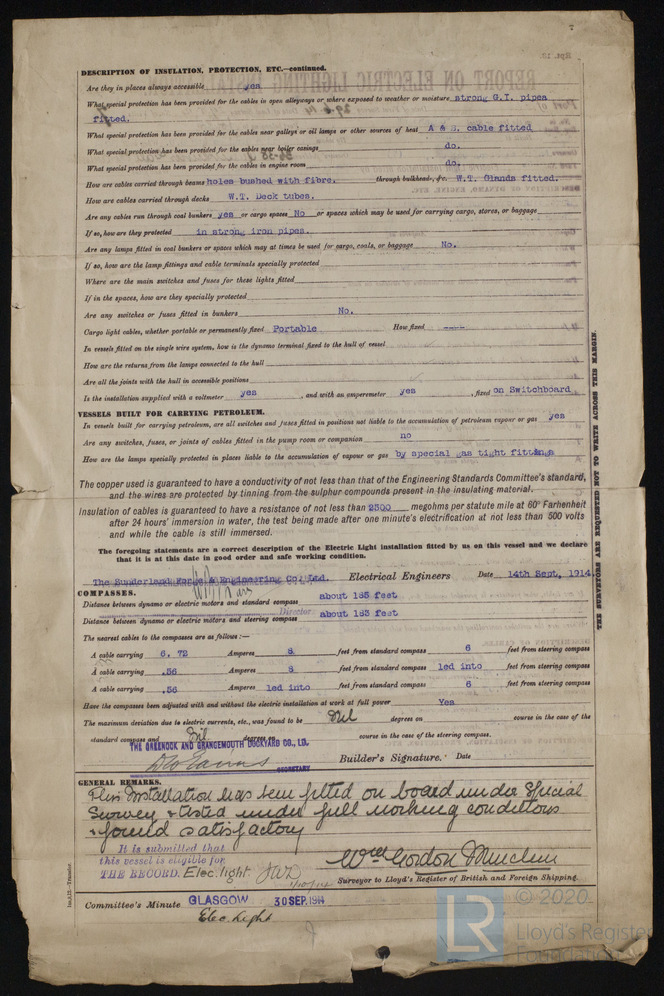 DESCRIPTION OF INSULATION, PROTECTION, ETC.—continued.
Are they in places always accessible yes
What special protection has been provided for the cables in open alleyways or where exposed to weather or moisture strong G.I. pipes
fitted.
What special protection has been provided for the cables near galleys or oil lamps or other sources of heat A & B. cable fitted
What special protection has been provided for the cables near boiler casings do.
What special protection has been provided for the cables in engine room do.
How are cables carried through beams holes bushed with fibre. through bulkheads, &c. W.T. Glands fitted.
How are cables carried through decks W.T. Deck tubes.
Are any cables run through coal bunkers yes or cargo spaces No or spaces which may be used for carrying cargo, stores, or baggage
If so, how are they protected in strong iron pipes.
Are any lamps fitted in coal bunkers or spaces which may at times be used for cargo, coals, or baggage No.
If so, how are the lamp fittings and cable terminals specially protected
Where are the main switches and fuses for these lights fitted
If in the spaces, how are they specially protected
Are any switches or fuses fitted in bunkers No.
Cargo light cables, whether portable or permanently fixed Portable How fixed ----
In vessels fitted on the single wire system, how is the dynamo terminal fixed to the hull of vessel
How are the returns from the lamps connected to the hull
Are all the joints with the hull in accessible positions
Is the installation supplied with a voltmeter yes , and with an amperemeter yes , fixed on Switchboard
VESSELS BUILT FOR CARRYING PETROLEUM.
In vessels built for carrying petroleum, are all switches and fuses fitted in positions not liable to the accumulation of petroleum vapour or gas yes
Are any switches, fuses, or joints of cables fitted in the pump room or companion no
How are the lamps specially protected in places liable to the accumulation of vapour or gas by special gas tight fittings
The copper used is guaranteed to have a conductivity of not less than that of the Engineering Standards Committee's standard,
and the wires are protected by tinning from the sulphur compounds present in the insulating material.
Insulation of cables is guaranteed to have a resistance of not less than 2500 megohms per statute mile at 60° Farhenheit
after 24 hours' immersion in water, the test being made after one minute's electrification at not less than 500 volts
and while the cable is still immersed.
The foregoing statements are a correct description of the Electric Light installation fitted by us on this vessel and we declare
that it is at this date in good order and safe working condition.
The Sunderland Forge & Engineering Co. Ltd. Electrical Engineers Date 14th Sept, 1914
COMPASSES.
Distance between dynamo or electric motors and standard compass about 185 feet
Director
Distance between dynamo or electric motors and steering compass about 183 feet
The nearest cables to the compasses are as follows:—
A cable carrying 6.72 Amperes 8 feet from standard compass 6 feet from steering compass
A cable carrying .56 Amperes 8 feet from standard compass led into feet from steering compass
A cable carrying .56 Amperes led into feet from standard compass 6 feet from steering compass
Have the compasses been adjusted with and without the electric installation at work at full power Yes
The maximum deviation due to electric currents, etc., was found to be Nil degrees on course in the case of the
standard compass and Nil degrees on course in the case of the steering compass.
THE GREENOCK AND GRANGEMOUTH DOCKYARD CO., LD.
SECRETARY
Builder's Signature. Date
GENERAL REMARKS.
This Installation has been fitted on board under Special
Survey & tested under full working conditions
& found satisfactory
It is submitted that
this vessel is eligible for
THE RECORD. Elec. light
Wm Gordon
Surveyor to Lloyd's Register of British and Foreign Shipping.
Committee's Minute GLASGOW 30 SEP. 1914
Elec. Light
THE SURVEYORS ARE REQUESTED NOT TO WRITE ACROSS THIS MARGIN.
© 2020
LR
Lloyd's Register
Foundation